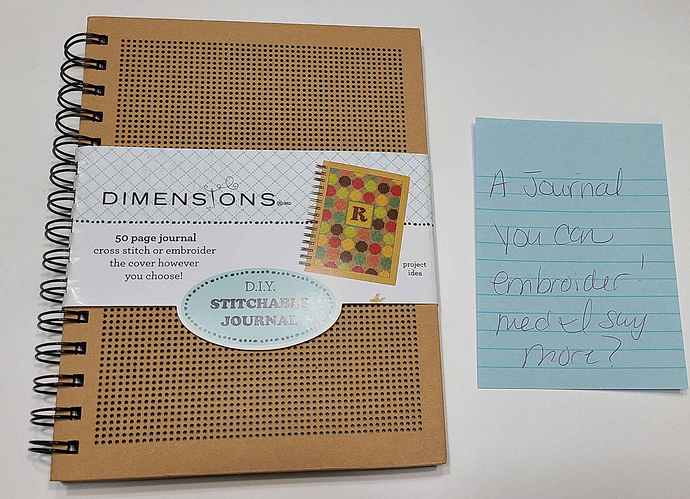 DIMENSIONS
50 page journal
cross stitch or embroider
the cover however
you choose!
R
project
idea
D.I.Y.
STITCHABLE
JOURNAL
A Journal
you can
embroider!
need I say
more?